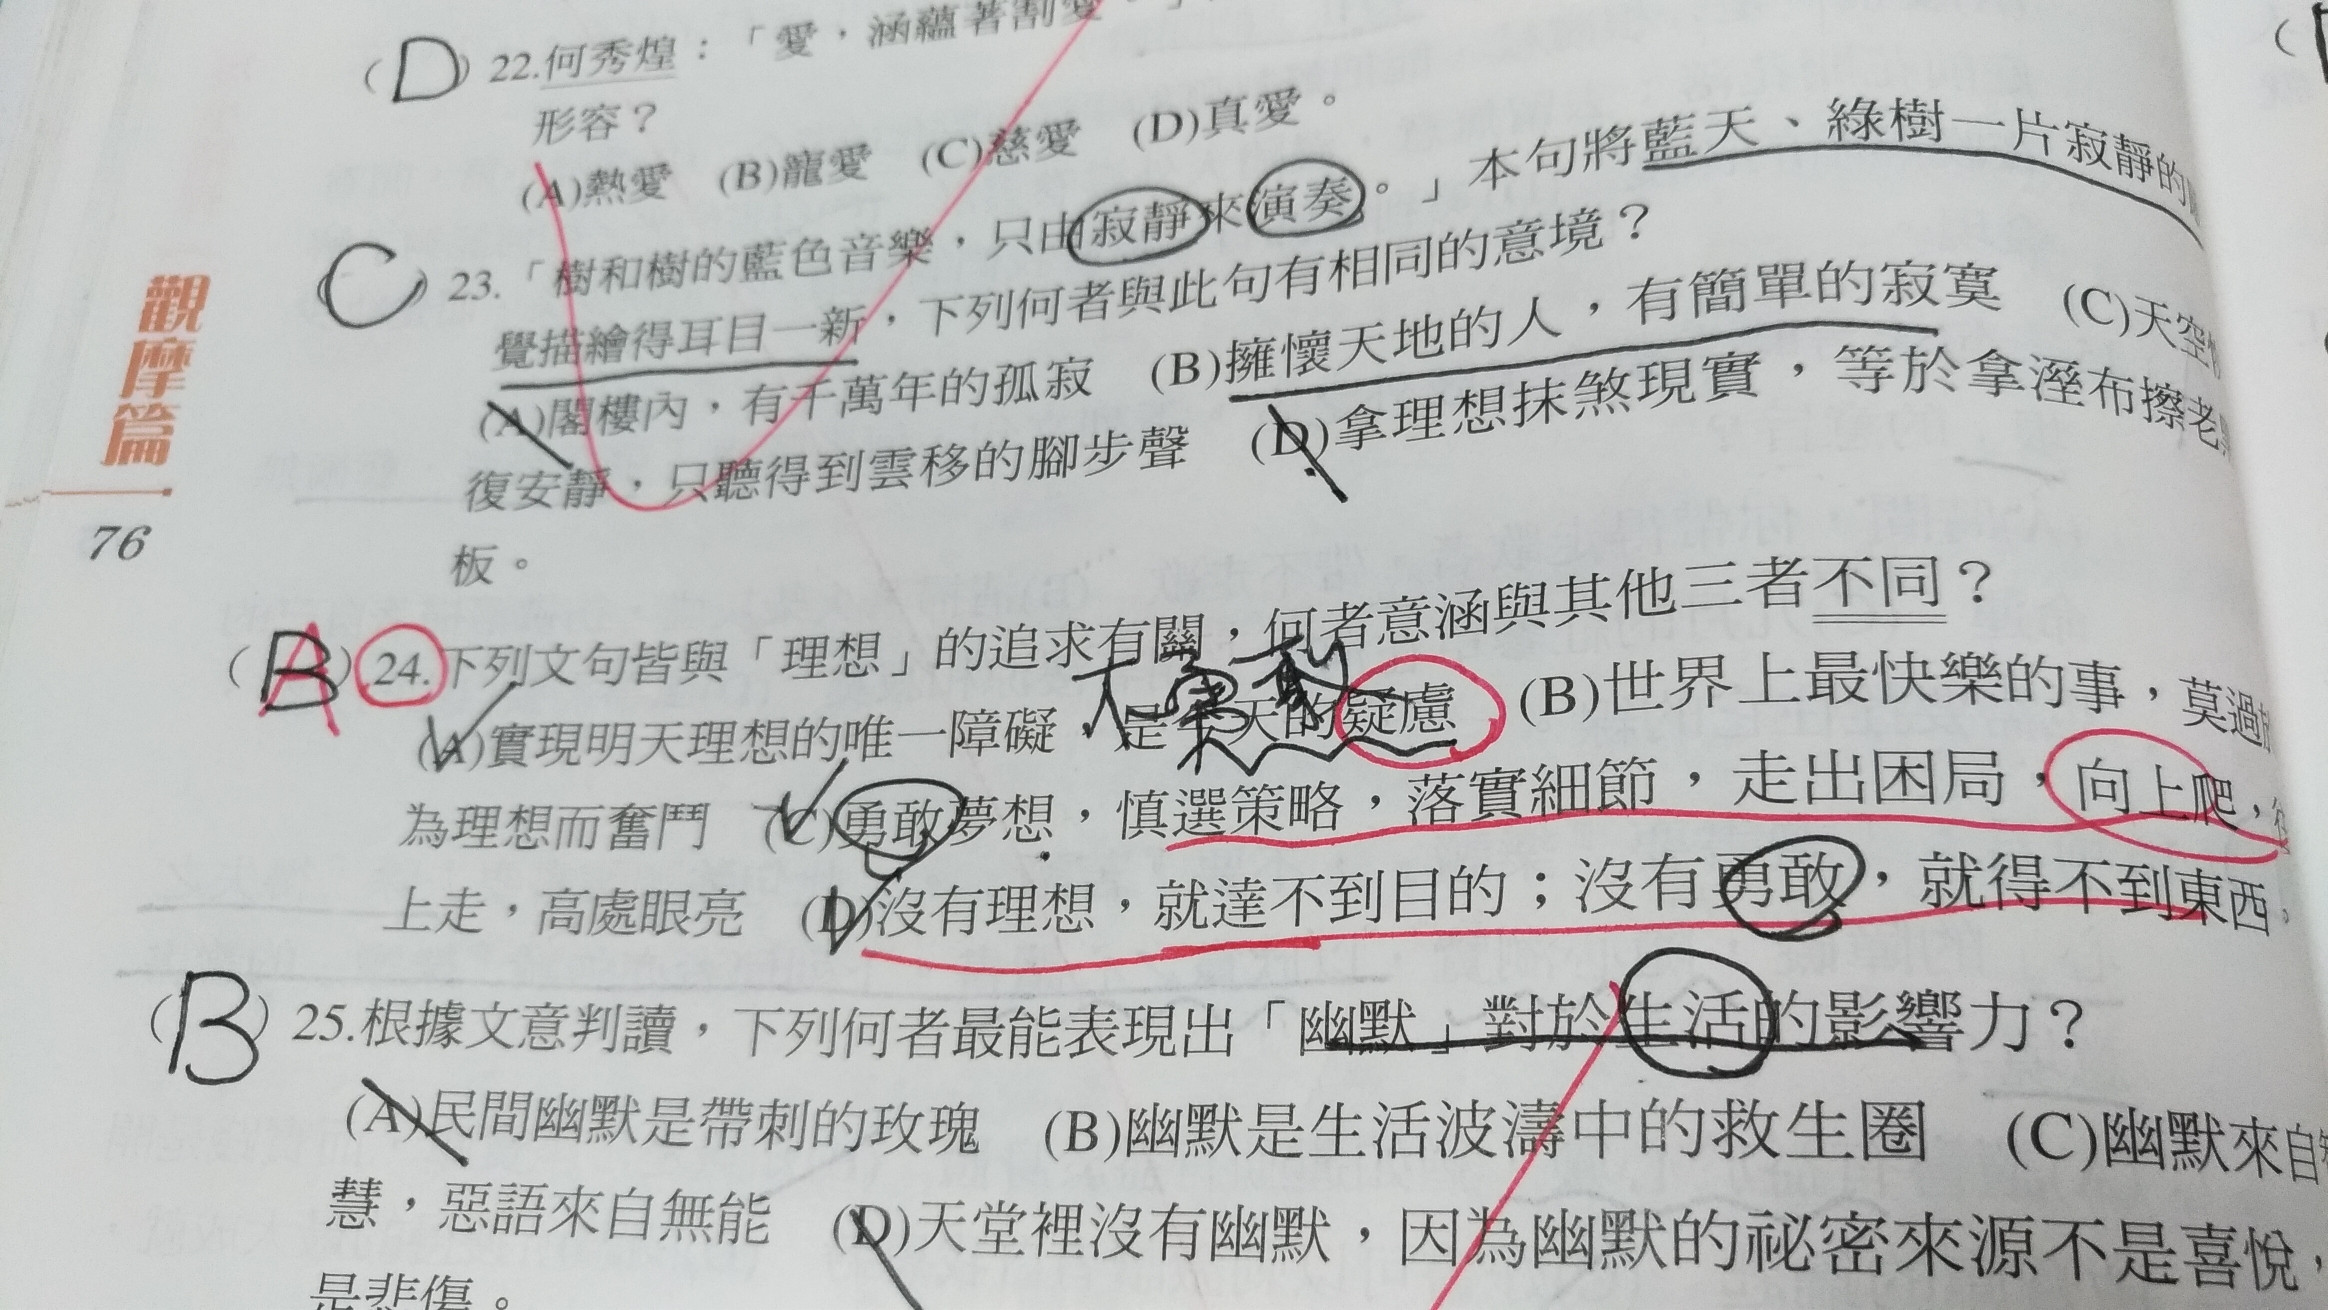 (D) 22.何秀煌：「愛，涵蘊著割愛。」
形容？
(A)熱愛 (B)寵愛 (C)慈愛 (D)真愛。
(C) 23.「樹和樹的藍色音樂，只由寂靜來演奏。」本句將藍天、綠樹一片寂靜的
覺描繪得耳目一新，下列何者與此句有相同的意境？
(A)閣樓內，有千萬年的孤寂 (B)擁懷天地的人，有簡單的寂寞 (C)天空
復安靜，只聽得到雲移的腳步聲 (D)拿理想抹煞現實，等於拿溼布擦老
板。
(B A) 24.下列文句皆與「理想」的追求有關，何者意涵與其他三者不同？
(A)實現明天理想的唯一障礙，是今天的疑慮 (B)世界上最快樂的事，莫過
為理想而奮鬥 (C)勇敢夢想，慎選策略，落實細節，走出困局，向上爬，
上走，高處眼亮 (D)沒有理想，就達不到目的；沒有勇敢，就得不到東西，
(B) 25.根據文意判讀，下列何者最能表現出「幽默」對於生活的影響力？
(A)民間幽默是帶刺的玫瑰 (B)幽默是生活波濤中的救生圈 (C)幽默來自
慧，惡語來自無能 (D)天堂裡沒有幽默，因為幽默的祕密來源不是喜悅，
是悲傷。
觀摩篇
76